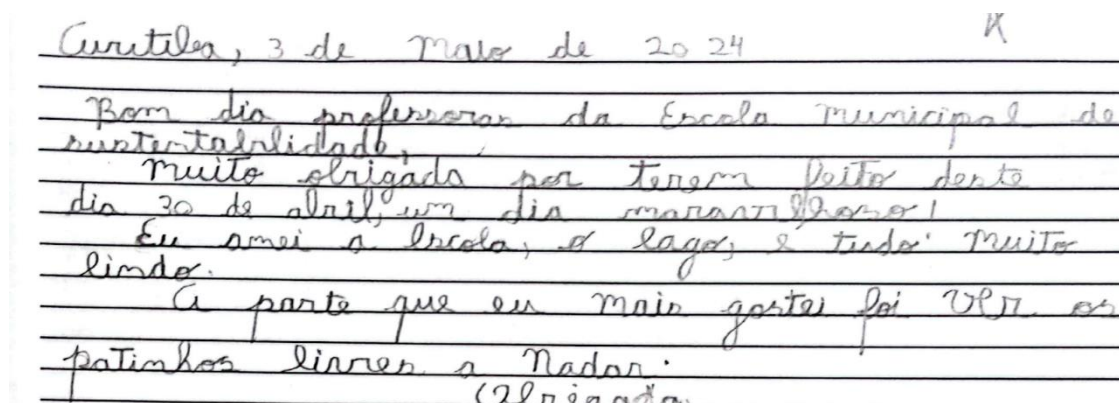 Curitiba, 3 de maio de 2024
Bom dia professoras da Escola municipal de
sustentabilidade,
Muito obrigada por terem feito deste
dia 30 de abril, um dia maravilhoso!
Eu amei a escola, o lago, é tudo muito
lindo.
A parte que eu mais gostei foi ver os
patinhos livres a nadar.
Obrigada